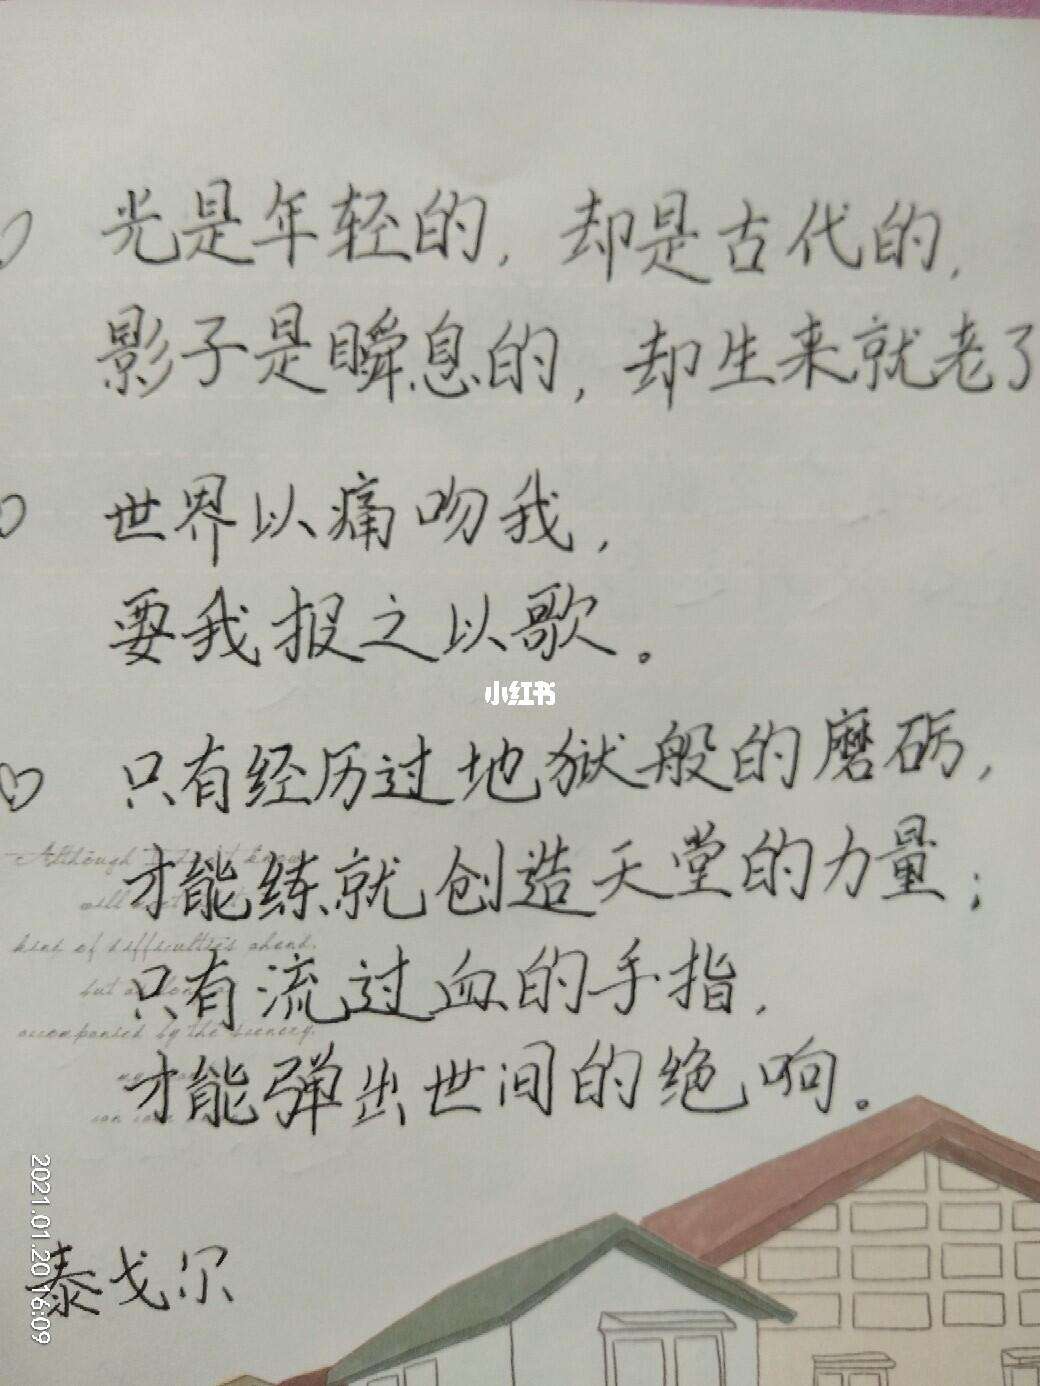 光是年轻的，却是古代的，
影子是瞬息的，却生来就老了
世界以痛吻我，
要我报之以歌。
小红书
只有经历过地狱般的磨砺，
才能练就创造天堂的力量；
只有流过血的手指，
才能弹出世间的绝响。
Although I don't know
will
kind of difficulties ahead,
but
accompanied by the scenery.
泰戈尔
2021.01.20 16:09